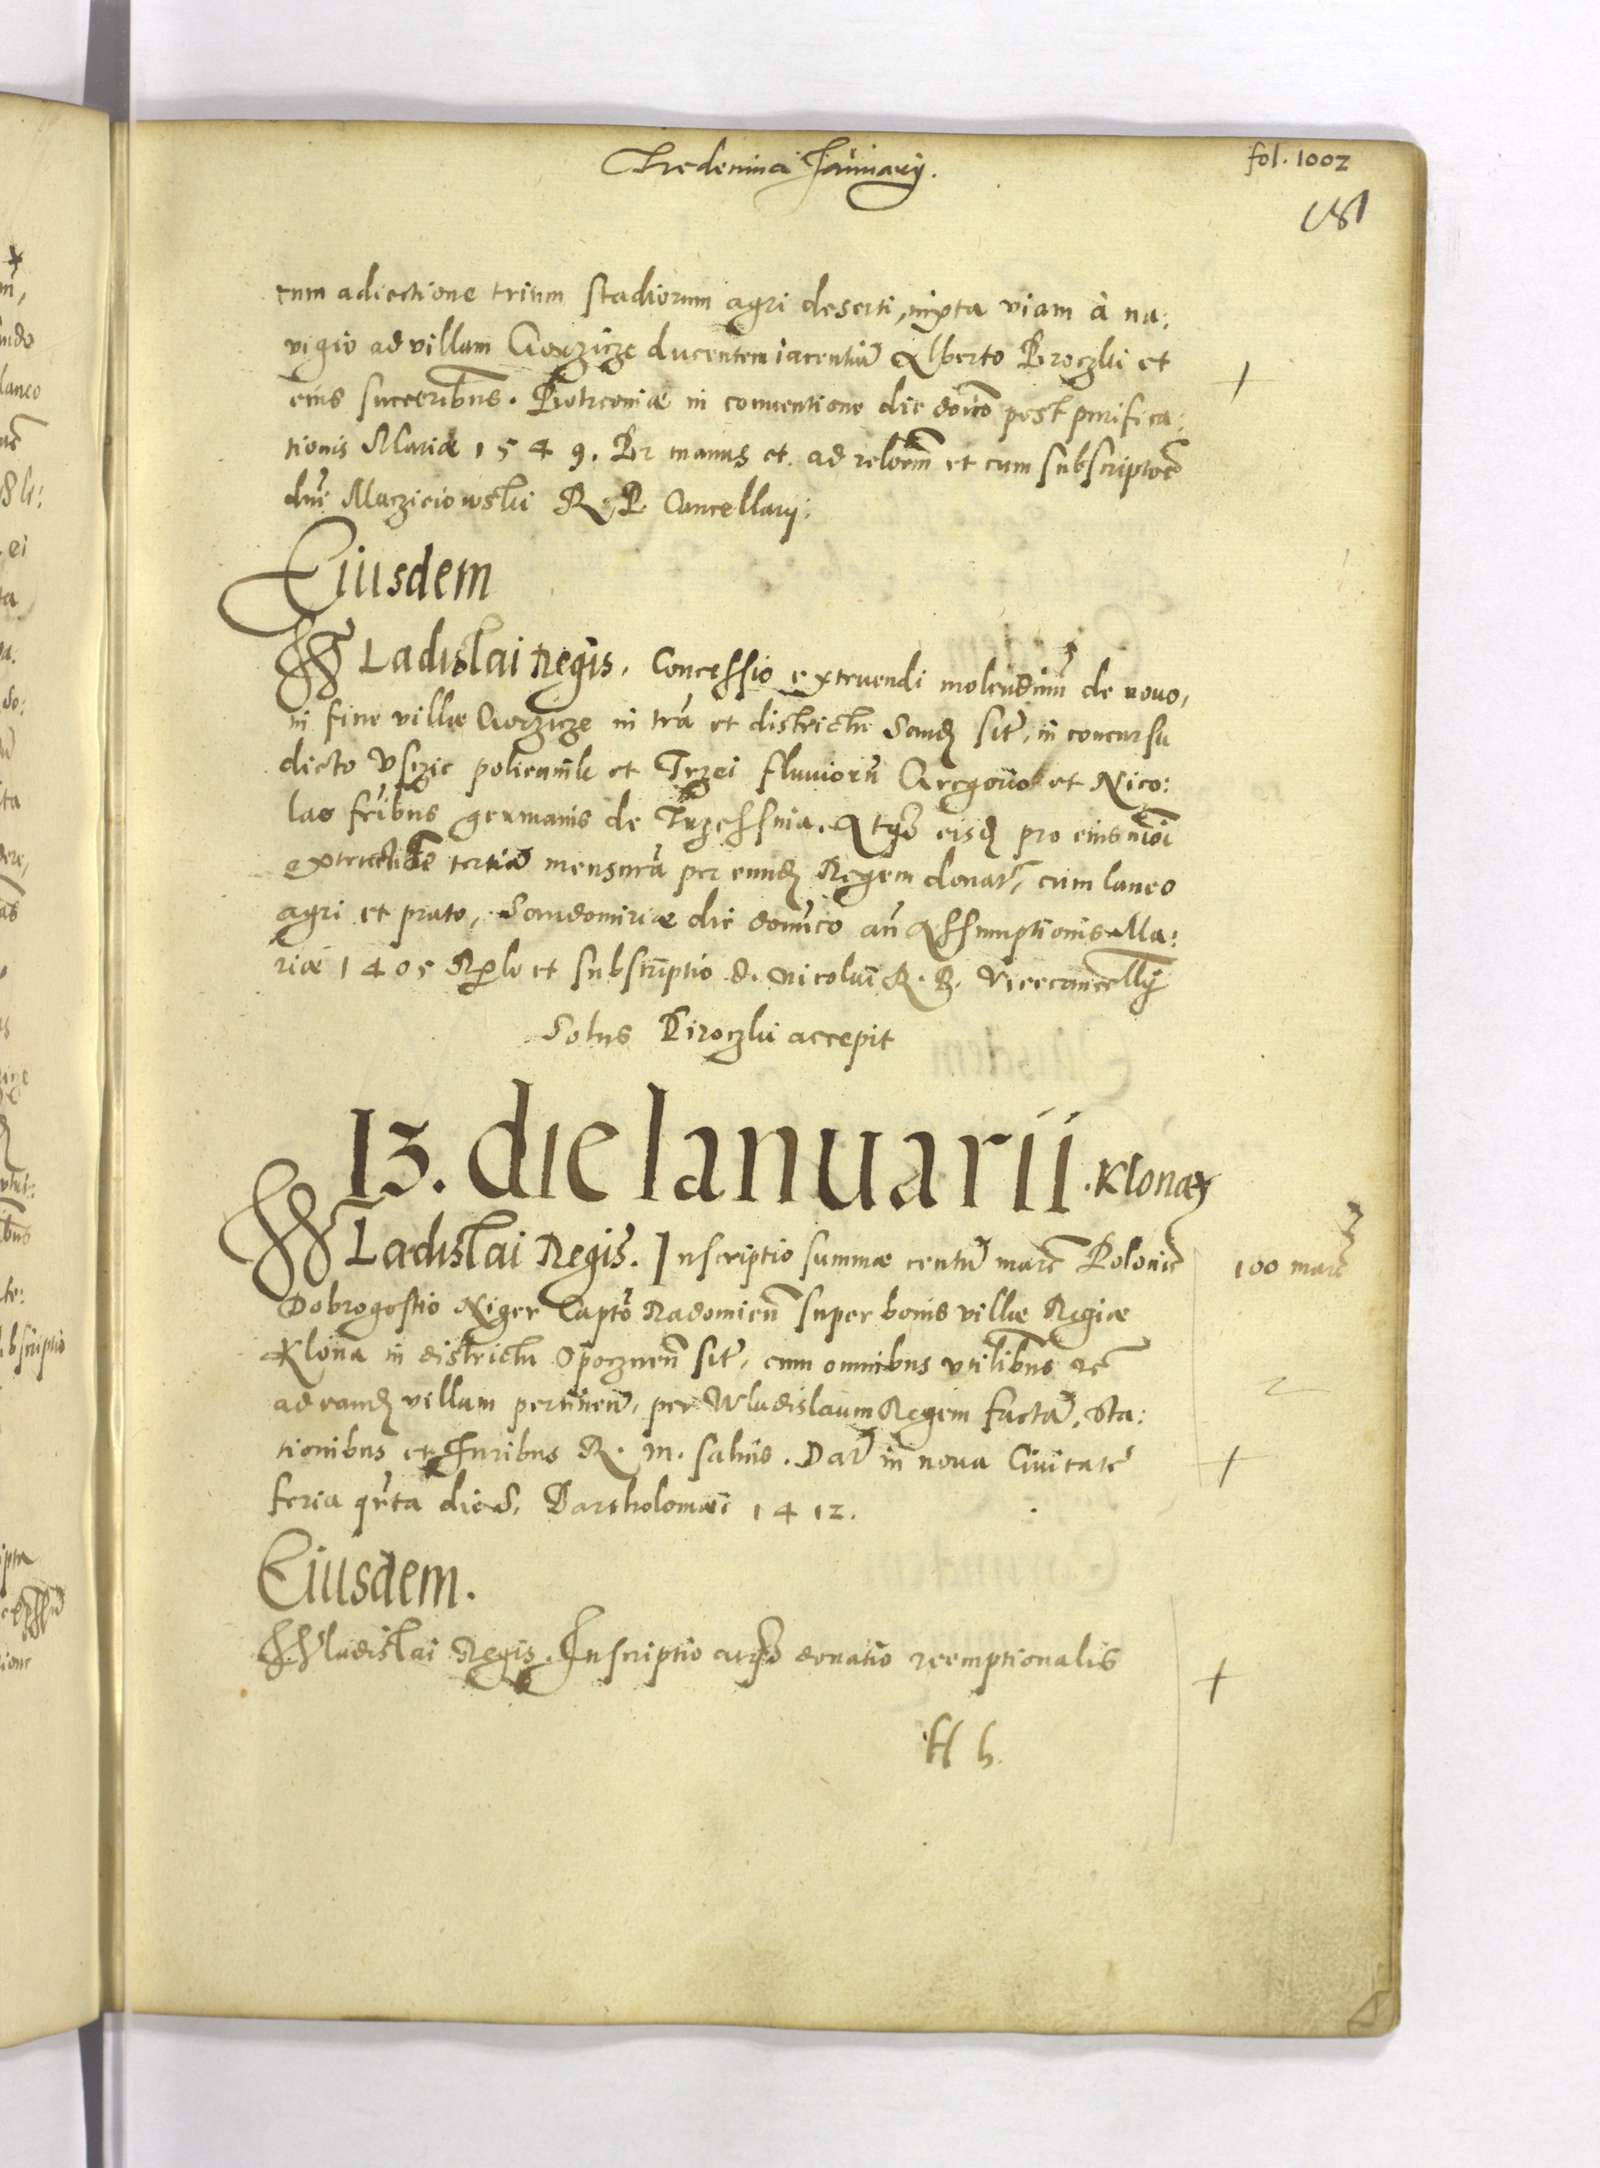 Tredecima Januarij.
fol. 1002
181
cum adiectione trium stadiorum agri deserti, iuxta viam à na:
vigio ad villam Gorzicze ducentem iacentiu Alberto Broczki et
eius succeribus. Piotrconiæ in conuentione die dnico post purifica:
tionis Mariæ 1549. Per manus et ad reloem et cum subscriptoe
dni Macziciowski R. P. Cancellarij.
Eiusdem
Wladislai Regis. Concessio extruendi molendinu de nouo,
in fine villæ Gorzicze in tra et districtu Sand sit, in concursu
dicto Vsczie et Trzei fluuioru Gregorio et Nico:
lao fribus germanis de Atqz eisd pro eius moi
extructioe tertia mensura per eund Regem donat, cum laneo
agri et prato, Sandomiriæ die domico an Assumptionis Ma:
riæ 1405 et subscriptio d. Nicolai R. P. Vicecancellij
Solus Piroczki accepit
13. die Ianuarii. Klonax
Wladislai Regis. Inscriptio summæ centu marc Polonic
100 marc
Dobrogostio Niger Capto Radomien super bonis villæ Regiæ
Klona in districtu Opocznen sit, cum omnibus vtilibus etc
ad eand villam pertinen, per Wladislaum Regem facta, Sta:
tionibus et Iuribus R. M. saluis. Dat in noua Ciuitate
feria qrta die S. Bartholomæi 1412.
Eiusdem.
Wladislai Regis. Inscriptio atqz donatio reemptionalis
H h